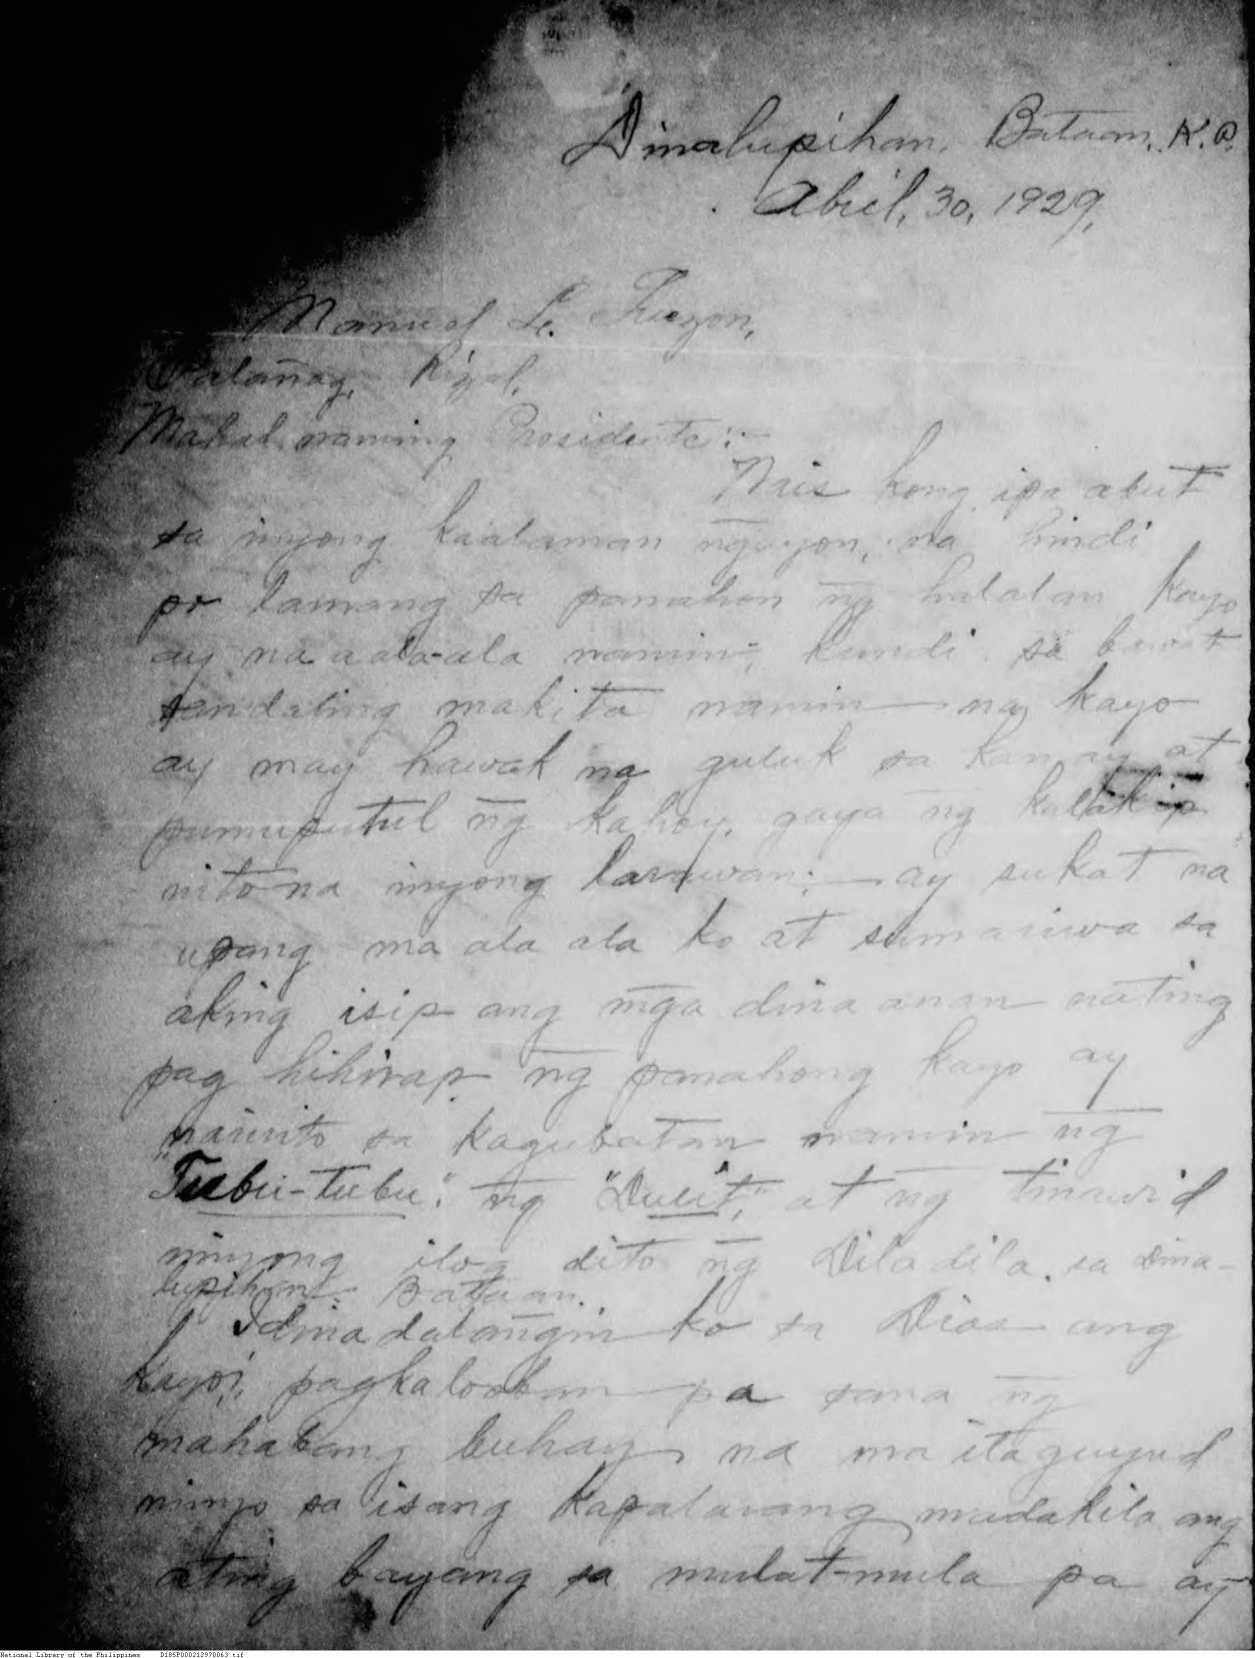 Dinalupihan, Bataan, K. P.
Abril, 30, 1929,
Manuel L. Quezon,
Rizal,
Mahal naming Presidente:-
Nais kong ipa abut
sa inyong kaalaman ngayon, na hindi
po lamang sa panahon n̄g halalan kayo
ay na aala-ala namin; kundi sa bawat
sandaling makita namin na kayo
ay may hawak na guluk sa kamay at
pumuputul n̄g kahoy, gaya n̄g kalakip
nito na inyong larawan; ay sukat na
upang ma ala ala ko at sumariwa sa
aking isip ang m̄ga dina anan nating
pag hihirap n̄g panahong kayo ay
narito sa kagubatan namin n̄g
"Tubu-tubu". n̄g "Dulit", at n̄g tinawid
ninyong ilog dito n̄g Diladila, sa Dina-
lupihan Bataan.
Idinadalan̄gin ko sa Dios ang
kayo'i, pagkalooban pa sana n̄g
mahabang buhay na ma itaguyud
ninyo sa isang kapalarang madakila ang
ating bayang sa mulat-mula pa ay
National Library of the Philippines D185P000212970063.tif